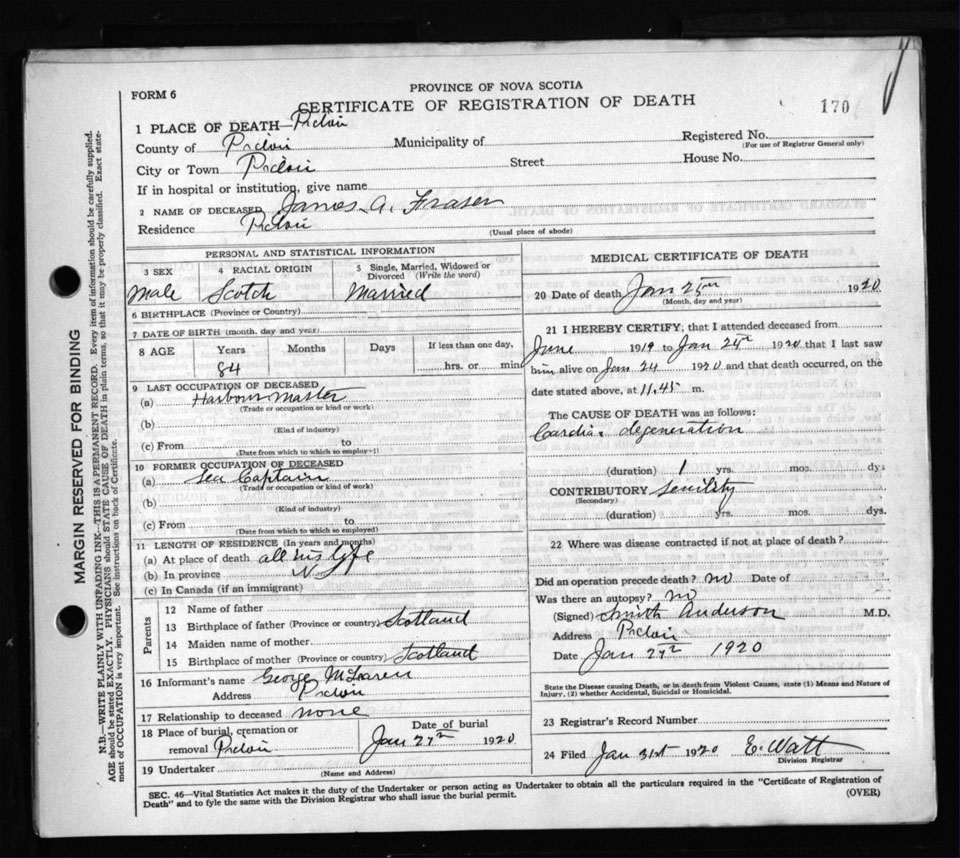 FORM 6
PROVINCE OF NOVA SCOTIA
CERTIFICATE OF REGISTRATION OF DEATH
170
1 PLACE OF DEATH—Pictou
County of Pictou Municipality of Registered No.
(For use of Registrar General only)
City or Town Pictou Street House No.
If in hospital or institution, give name
2 NAME OF DECEASED James A. Fraser
Residence Pictou (Usual place of abode)
PERSONAL AND STATISTICAL INFORMATION
3 SEX 4 RACIAL ORIGIN 5 Single, Married, Widowed or Divorced (Write the word)
Male Scotch Married
6 BIRTHPLACE (Province or Country)
7 DATE OF BIRTH (month, day and year)
8 AGE Years Months Days If less than one day,
84 hrs. or min
9 LAST OCCUPATION OF DECEASED
(a) Harbour Master
(Trade or occupation or kind of work)
(b)
(Kind of industry)
(c) From to
(Date from which to which so employed)
10 FORMER OCCUPATION OF DECEASED
(a) Sea Captain
(Trade or occupation or kind of work)
(b)
(Kind of industry)
(c) From to
(Date from which to which so employed)
11 LENGTH OF RESIDENCE (In years and months)
(a) At place of death all his life
(b) In province N S
(c) In Canada (if an immigrant)
Parents
12 Name of father
13 Birthplace of father (Province or country) Scotland
14 Maiden name of mother
15 Birthplace of mother (Province or country) Scotland
16 Informant's name George McLaren
Address Pictou
17 Relationship to deceased none
18 Place of burial, cremation or removal Pictou
Date of burial
Jan 27th 1920
19 Undertaker
(Name and Address)
MEDICAL CERTIFICATE OF DEATH
20 Date of death Jan 25th 1920
(Month, day and year)
21 I HEREBY CERTIFY, that I attended deceased from
June 1919 to Jan 24th 1920 that I last saw
him alive on Jan 24 1920 and that death occurred, on the
date stated above, at 11.45 m.
The CAUSE OF DEATH was as follows:
Cardiac degeneration
(duration) 1 yrs. mos. dys
CONTRIBUTORY Senility
(Secondary)
(duration) yrs. mos. dys.
22 Where was disease contracted if not at place of death?
Did an operation precede death? no Date of
Was there an autopsy? no
(Signed) Smith Anderson M.D.
Address Pictou
Date Jan 27th 1920
State the Disease causing Death, or in death from Violent Causes, state (1) Means and Nature of Injury, (2) whether Accidental, Suicidal or Homicidal.
23 Registrar's Record Number
24 Filed Jan 31st 1920 E. Watt
Division Registrar
SEC. 46—Vital Statistics Act makes it the duty of the Undertaker or person acting as Undertaker to obtain all the particulars required in the "Certificate of Registration of
Death" and to fyle the same with the Division Registrar who shall issue the burial permit.
(OVER)
MARGIN RESERVED FOR BINDING
N.B.—WRITE PLAINLY WITH UNFADING INK—THIS IS A PERMANENT RECORD. Every item of information should be carefully supplied.
AGE should be stated EXACTLY. PHYSICIANS should STATE CAUSE OF DEATH in plain terms, so that it may be properly classified. Exact statement
of OCCUPATION is very important. See instructions on back of Certificate.